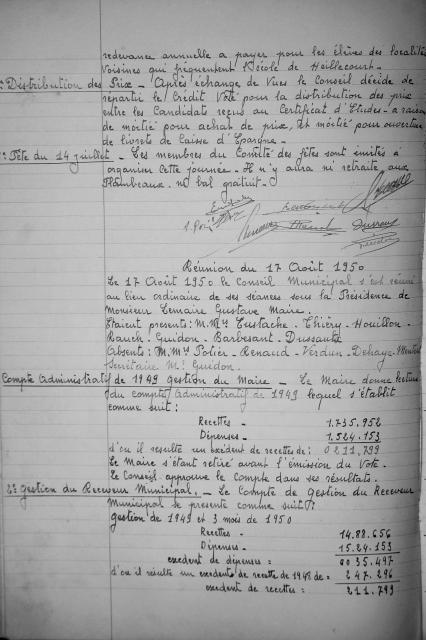 redevance annuelle a payer pour les élèves des localités
voisines qui fréquentent l'École de Heillecourt. -
Distribution des Prix - Après échange de Vues le Conseil décide de
répartir le Crédit Voté pour la distribution des prix
entre les Candidats reçus au Certificat d'Etudes - a raison
de moitié pour achat de prix, et moitié pour ouverture
de livrets de Caisse d'Epargne. -
Fête du 14 juillet - Les membres du Comité des fêtes sont invités à
organiser cette journée - Il n'y aura ni retraite aux
flambeaux, ni bal gratuit. -
Réunion du 17 Août 1950
Le 17 Août 1950 le Conseil Municipal s'est réuni
au lieu ordinaire de ses séances sous la Présidence de
Monsieur Lemaire Gustave Maire.
Etaient présents : M.M. Eustache - Thiéry - Houillon -
Rauch - Guidon - Barbesant - Dussaute
Absents : M.M. Potier - Renaud - Verdun - Dehaye -
Secrétaire M. Guidon.
Compte Administratif de 1949 gestion du Maire - Le Maire donne lecture
du compte administratif de 1949 lequel s'établit
comme suit :
Recettes - 1.735.952
Dépenses - 1.524.153
d'où il résulte un excédent de recettes de : 0211.799
Le Maire s'étant retiré avant l'émission du Vote.
Le Conseil approuve le Compte dans ses résultats.
2° Gestion du Receveur Municipal. - Le Compte de Gestion du Receveur
Municipal se présente comme suit :
Gestion de 1949 et 3 mois de 1950
Recettes - 14.88.656
Dépenses - 15.24.153
excédent de dépenses = 0035.497
d'où il résulte un excédent de recette de 1948 de = 247.296
excédent de recettes : 211.799